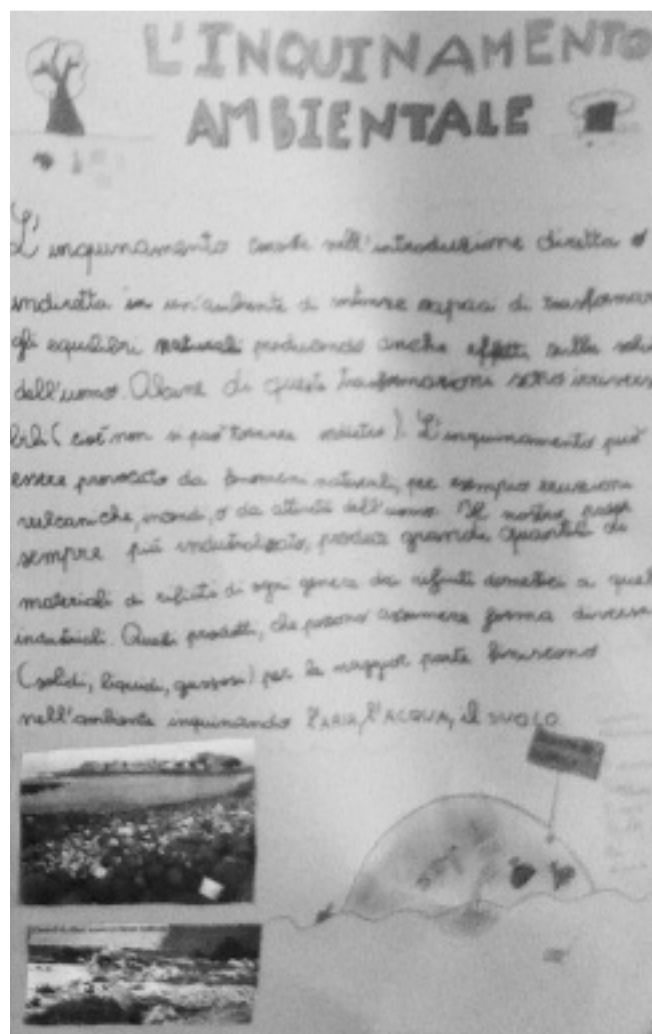 L'INQUINAMENTO
AMBIENTALE
L'inquinamento consiste nell'introduzione diretta o
indiretta in un'ambiente di sostanze capaci di trasformar
gli equilibri naturali producendo anche effetti sulla salu
dell'uomo. Alcune di queste trasformazioni sono irrivers
bili (cioè non si può tornare indietro). L'inquinamento può
essere provocato da fenomeni naturali, per esempio eruzioni
vulcaniche, incendi, o da attività dell'uomo. Il nostro paese
sempre più industrializzato, produce grande quantità di
materiali di rifiuto di ogni genere dai rifiuti domestici a quel
industriali. Questi prodotti, che possono assumere forma diversa
(solidi, liquidi, gassosi) per la maggior parte finiscono
nell'ambiente inquinando l'ARIA, l'ACQUA, il SUOLO